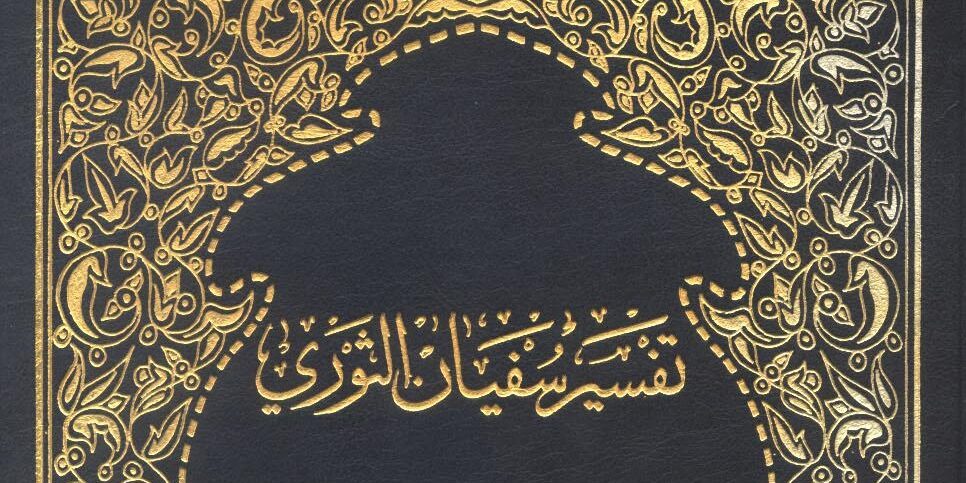 تفسير سفيان الثوري